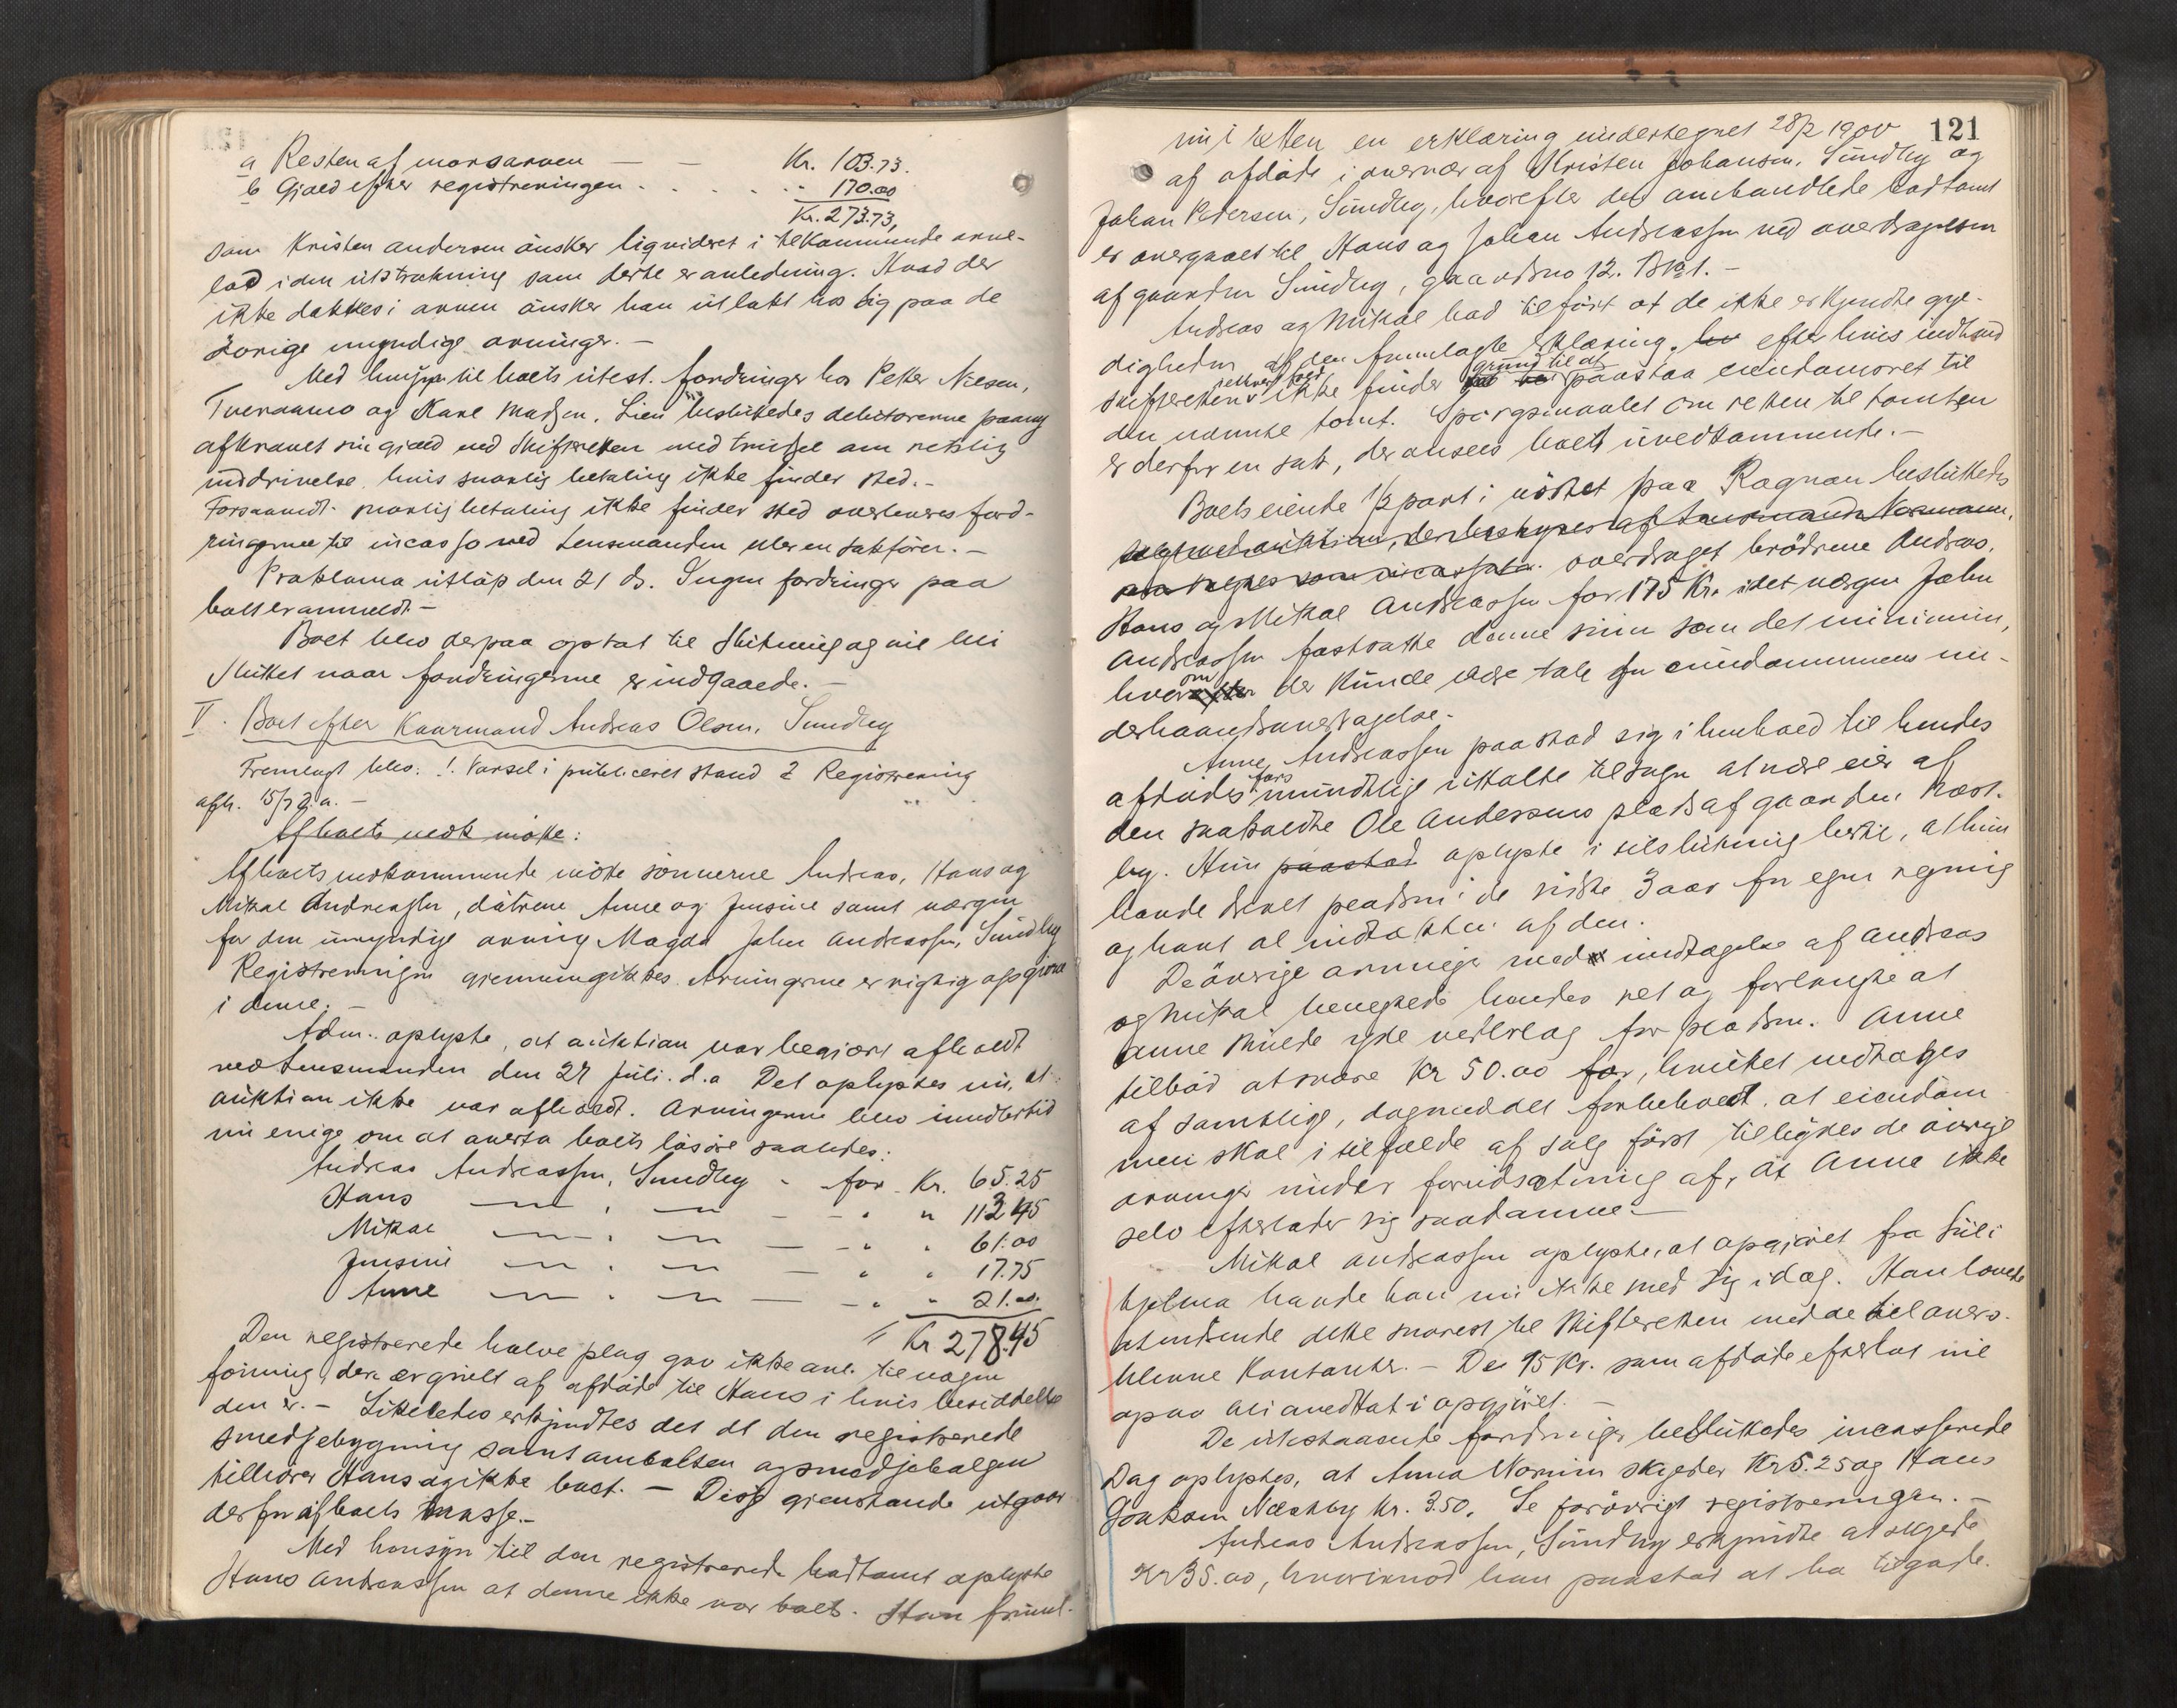 a Resten af morsarven — — Kr. 103.73.
b Gjæld efter registreringen . . . . . " 170.00
Kr. 273.73,
som Kristen Andersen ønsker liqvideret i tilkommende arve-
lod i den utstrækning som dertil er anledning. Hvad der
ikke dækkes i arven ønsker han utlakt hos sig paa de
øvrige umyndige arvinger. —
Med hensyn til boets utest. fordringer hos Peter Nilsen,
Tveraamo og Kane Madsen, Lien besluttedes debitorerne paany
afkrævet sin gjæld ved Skifteretten med trussel om retslig
inddrivelse hvis snarlig betaling ikke finder sted. —
Forsaavidt snarlig betaling ikke finder sted overleveres ford-
ringerne til incasso ved Lensmanden eller en sakfører. —
Proklama utløp den 21 ds. Ingen fordringer paa
boet er anmeldt —
Boet blev derpaa optat til slutning og vil bli
sluttet naar fordringerne er indgaaede. —
V. Boet efter Kaarmand Andreas Olsen, Sundby
Fremlagt blev: 1. Varsel i publiceret stand 2 Registrering
afh. 15/7 d.a. —
Af boets vedk møtte:
Af boets vedkommende møtte sønnerne Andreas, Hans og
Mikal Andreassen, døtrene Anne og Jensine samt værgen
for den umyndige arving Magda John Andreassen, Sundby
Registreringen gjennemgikkes. Arvingerne er rigtig opgivne
i denne. —
Adm. oplyste, at auktion var begjært afholdt
ved Lensmanden den 27 juli d.a Det oplystes nu, at
auktion ikke var afholdt. Arvingerne blev imidlertid
nu enige om at overta boets løsøre saaledes:
Andreas Andreassen, Sundby - for Kr. 65.25
Hans — " — - - " " 113.45
Mikal — " — — - " " 61.00
Jensine — " — — " " 17.75
Anne — " — — - " " 21.00
Kr 278.45
Den registrerede halve plog gav ikke anl. til nogen
føining, den er givet af afdøde til Hans i hvis besiddelse
den er. — Likeledes erkjendtes det at den registrerede
smedjebygning samt ambolten og smedjebælgen
tilhører Hans og ikke boet. — Disse gjenstande utgaar
derfor af boets masse. —
Med hensyn til den registrerede badtomt oplyste
Hans Andreassen at denne ikke var boets. Han freml.
121
nu i retten en erklæring undertegnet 28/2 1900
af afdøde i overvær af Kristen Johansen, Sundby og
Johan Pedersen, Sundby, hvorefter den omhandlede badtomt
er overgaaet til Hans og Johan Andreassen ved overdragelsen
af gaarden Sundby, gaardsno 12. Br no 1. —
Andreas og Mikal bad tilført at de ikke erkjendte gyl-
digheden af den fremlagte erklæring, efter hvis indhold
skifteretten ikke finder grund til at paastaa eiendomsret til
den nævnte tomt. Spørgsmaalet om retten til tomten
er derfor en sak, der ansees boets uvedkommende. —
Boets eiende 1/2 part i nøstet paa Rognan besluttedes
solgt ved auktion, der bestyres af Lensmand Normann,
overdraget brødrene Andreas,
Hans og Mikal Andreassen for 175 Kr. idet værgen John
Andreassen fastsatte denne sum som det minimum,
hvorom der kunde være tale for eiendommens un-
derhaandsovertagelse.
Anne Andreassen paastod sig i henhold til hendes
afdødes fars mundtlige uttalte tilsagn at være eier af
den saakaldte Ole Anderssens plads af gaarden Næst-
by. Hun paastod oplyste i tilslutning hertil, at hun
havde drevet pladsen i de sidste 3 aar for egen regning
og havt al indtækten af den.
De øvrige arvinger med undtagelse af Andreas
og Mikal benegtede hendes ret og forlangte at
Anne skulde yde vederlag for pladsen. Anne
tilbød at svare Kr 50.00 for, hvilket vedtoges
af samtlige, dog med det forbehold, at eiendom-
men skal i tilfælde af salg først tillignes de øvrige
arvinger under forudsætning af, at Anne ikke
selv efterlater sig saadanne. —
Mikal Andreassen oplyste, at opgjøret fra Suli-
tjelma havde han nu ikke med sig idag. Han lovede
at indsende dette snarest til Skifteretten med de tilovers-
blevne Kontanter. — De 95 Kr. som afdøde efterlot vil
ogsaa bli anedtat i opgjøret. —
De utestaaende fordringer besluttedes incasserede
Dog oplystes, at Anna Normim skylder Kr 5.25 og Hans
Joakim Næstby Kr. 3.50. Se forøvrigt registreringen. —
Andreas Andreassen, Sundby erkjendte at skylde
Kr 35.00, hvorimod han paastod at ha tilgode.